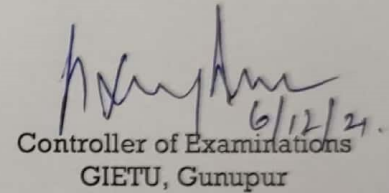 6/12/21.
Controller of Examinations
GIETU, Gunupur